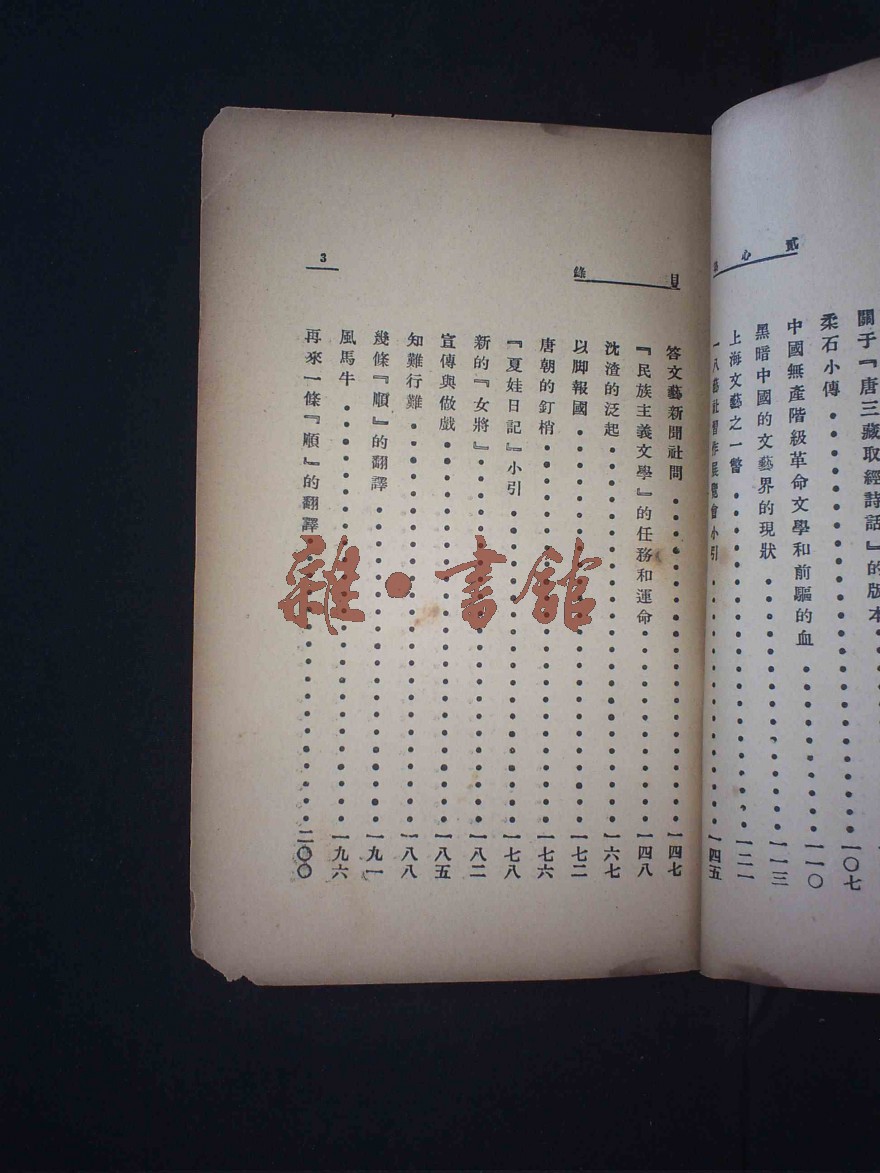 貳心
關于『唐三藏取經詩話』的版本
柔石小傳 一〇七
中國無產階級革命文學和前驅的血 一一〇
黑暗中國的文藝界的現狀 一一三
上海文藝之一瞥 一二一
一八藝社習作展覽會小引 一四五
目錄
3
答文藝新聞社問 一四七
『民族主義文學』的任務和運命 一四八
沈渣的泛起 一六七
以脚報國 一七二
唐朝的釘梢 一七六
『夏娃日記』小引 一七八
新的『女將』 一八二
宣傳與做戲 一八五
知難行難 一八八
幾條『順』的翻譯 一九一
風馬牛 一九六
再來一條『順』的翻譯 二〇〇
雜·書館